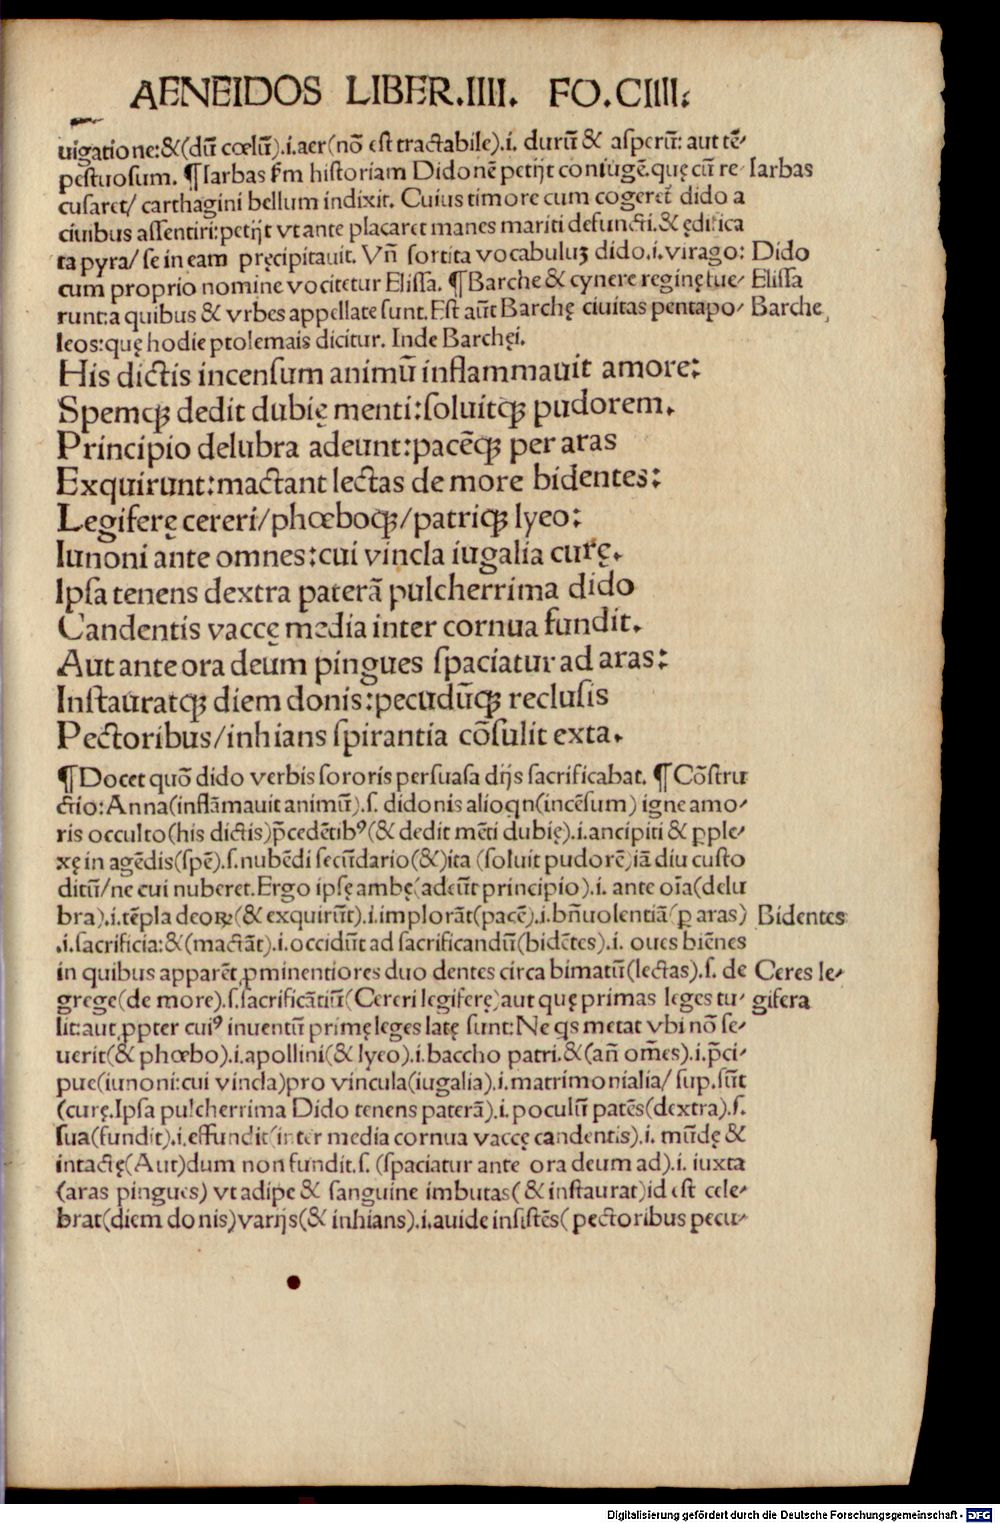 AENEIDOS LIBER.IIII. FO.CIIII.
uigatione:&(dū cœlū).i.aer(nō est tractabile).i. durū & asperū: aut tē-
pestuosum. ¶Iarbas ẜm historiam Didonē petijt coniugē.quę cū re Iarbas
cusaret/ carthagini bellum indixit. Cuius timore cum cogeret̄ dido a
ciuibus assentiri:petijt vt ante placaret manes mariti defuncti.& ędifica
ta pyra/ se in eam pręcipitauit. Vñ sortita vocabuluȝ dido.i.virago: Dido
cum proprio nomine vocitetur Elissa. ¶Barche & cynere reginę fue- Elissa
runt:a quibus & vrbes appellate sunt. Est aūt Barchę ciuitas pentapo- Barche
leos:quę hodie ptolemais dicitur. Inde Barchęi.
His dictis incensum animū inflammauit amore:
Spemqꝫ dedit dubię menti:soluitqꝫ pudorem.
Principio delubra adeunt:pacēqꝫ per aras
Exquirunt:mactant lectas de more bidentes:
Legiferę cereri/phœboqꝫ/patriqꝫ lyeo:
Iunoni ante omnes:cui vincla iugalia curę.
Ipsa tenens dextra paterā pulcherrima dido
Candentis vaccę media inter cornua fundit.
Aut ante ora deum pingues spaciatur ad aras:
Instauratqꝫ diem donis:pecudūqꝫ reclusis
Pectoribus/inhians spirantia cōsulit exta.
¶Docet quō dido verbis sororis persuasa dijs sacrificabat. ¶Cōstru
ctio: Anna(inflāmauit animū).s. didonis alioqn(incēsum) igne amo-
ris occulto(his dictis)p̄cedētibꝰ(& dedit mēti dubię).i.ancipiti & ꝑple-
xę in agēdis(spē).s.nubēdi secūdario(&)ita (soluit pudorē)iā diu custo
ditū/ne cui nuberet.Ergo ipsę ambę(adeūt principio).i. ante oīa(delu
bra).i.tēpla deoꝝ(& exquirūt).i.implorāt(pacē).i.bn̄uolentiā(ꝑ aras) Bidentes
.i.sacrificia:&(mactāt).i.occidūt ad sacrificandū(bidētes).i. oues biēnes
in quibus apparēt ꝓminentiores duo dentes circa bimatū(lectas).s. de Ceres le-
grege(de more).s.sacrificātiū(Cereri legiferę)aut quę primas leges tu- gifera
lit:aut ꝓpter cuiꝰ inuentū primę leges latę sunt:Ne qs metat vbi nō se-
uerit(& phœbo).i.apollini(& lyeo).i.baccho patri.&(añ om̄es).i.p̄ci-
pue(iunoni:cui vincla)pro vincula(iugalia).i.matrimonialia/ sup.sūt
(curę.Ipsa pulcherrima Dido tenens paterā).i.poculū patēs(dextra).s.
sua(fundit).i.effundit(inter media cornua vaccę candentis).i. mūdę &
intactę(Aut)dum non fundit.s. (spaciatur ante ora deum ad).i. iuxta
(aras pingues) vt adipe & sanguine imbutas( & instaurat)id est cele-
brat(diem donis)varijs(& inhians).i.auide insistēs( pectoribus pecu-
Digitalisierung gefördert durch die Deutsche Forschungsgemeinschaft - DFG